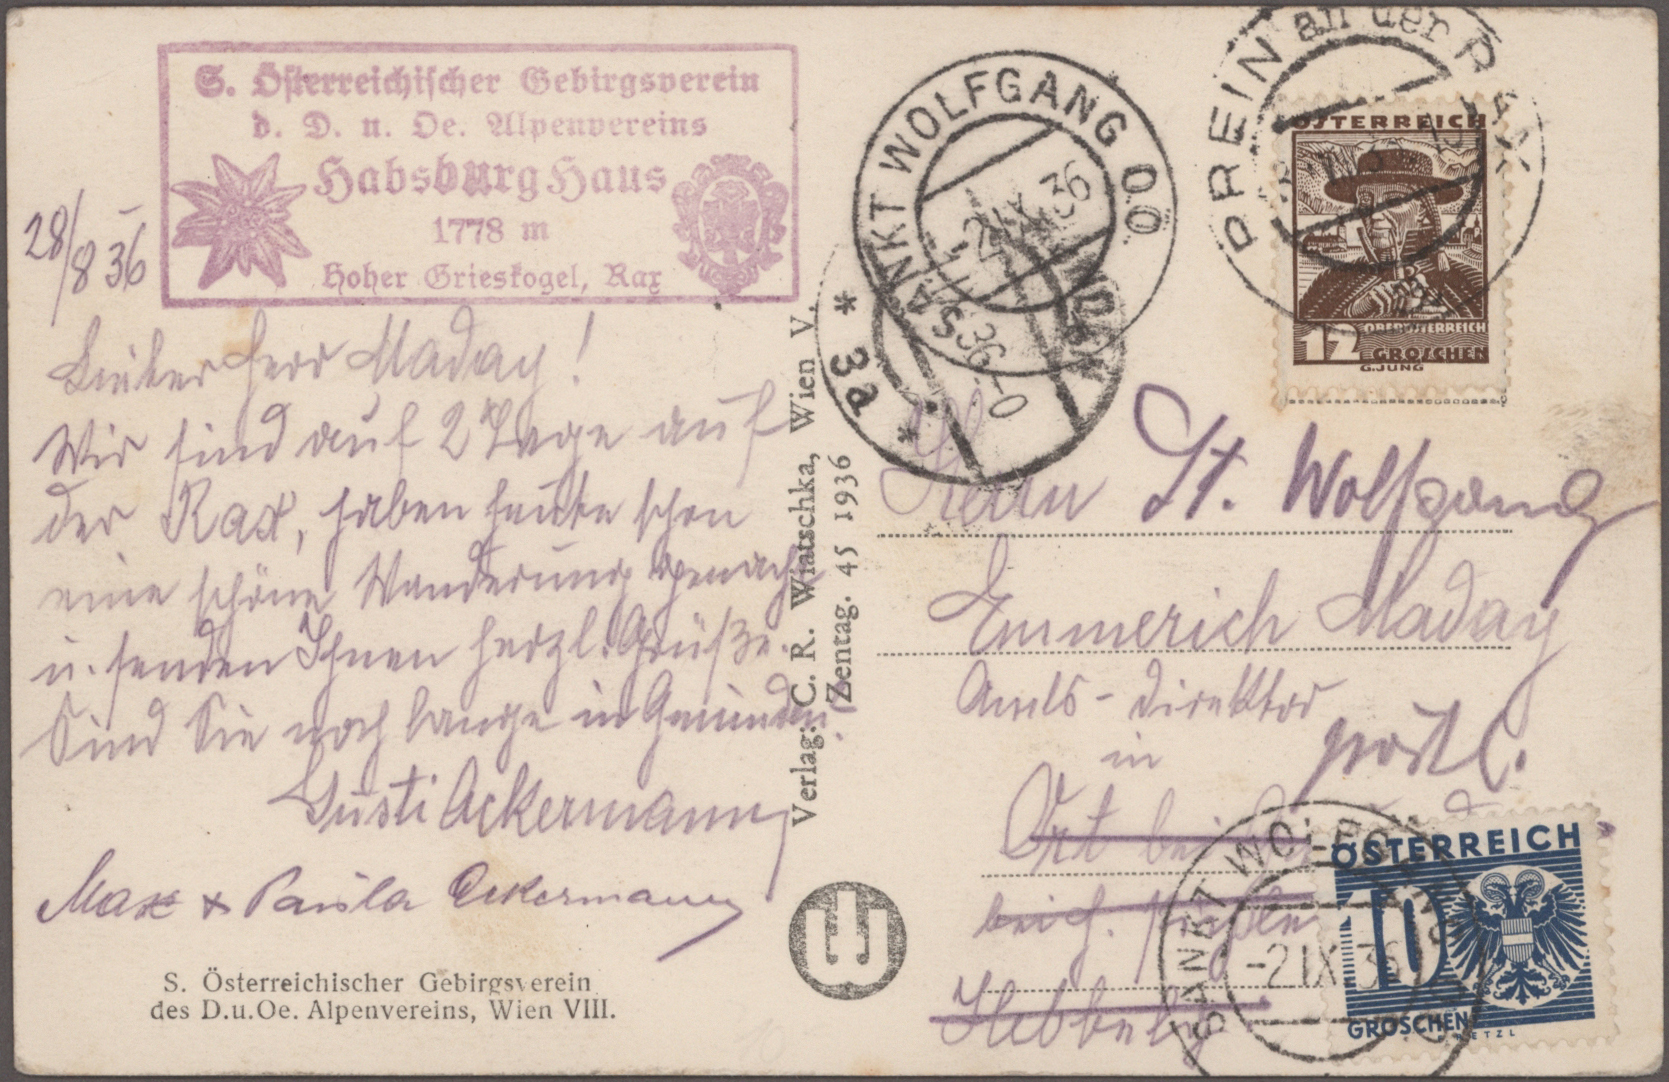 S. Österreichischer Gebirgsverein
d. D. u. Oe. Alpenvereins
Habsburg Haus
1778 m
Hoher Grieskogel, Rax
28/8 36
Lieber Herr Maday!
Wir sind auf 2 Tage auf
der Rax, haben heute schon
eine schöne Wanderung gemacht
u. senden Ihnen herzl. Grüße.
Sind Sie noch lange in Gmunden?
Gusti Ackermann
Max + Paula Ackermann
S. Österreichischer Gebirgsverein
des D.u.Oe. Alpenvereins, Wien VIII.
Verlag: C. R. Wiatschka, Wien V.
Zentag. 45 1936
SANKT WOLFGANG OÖ
-2.IX.36
* 3a *
PREIN an der RAX
ÖSTERREICH
OBERÖSTERREICH
12 GROSCHEN
G.JUNG
Herrn St. Wolfgang
Emmerich Maday
Amts-Direktor
in postl.
Ort bei
SANKT WOLFGANG
-2.IX.36
ÖSTERREICH
10
GROSCHEN